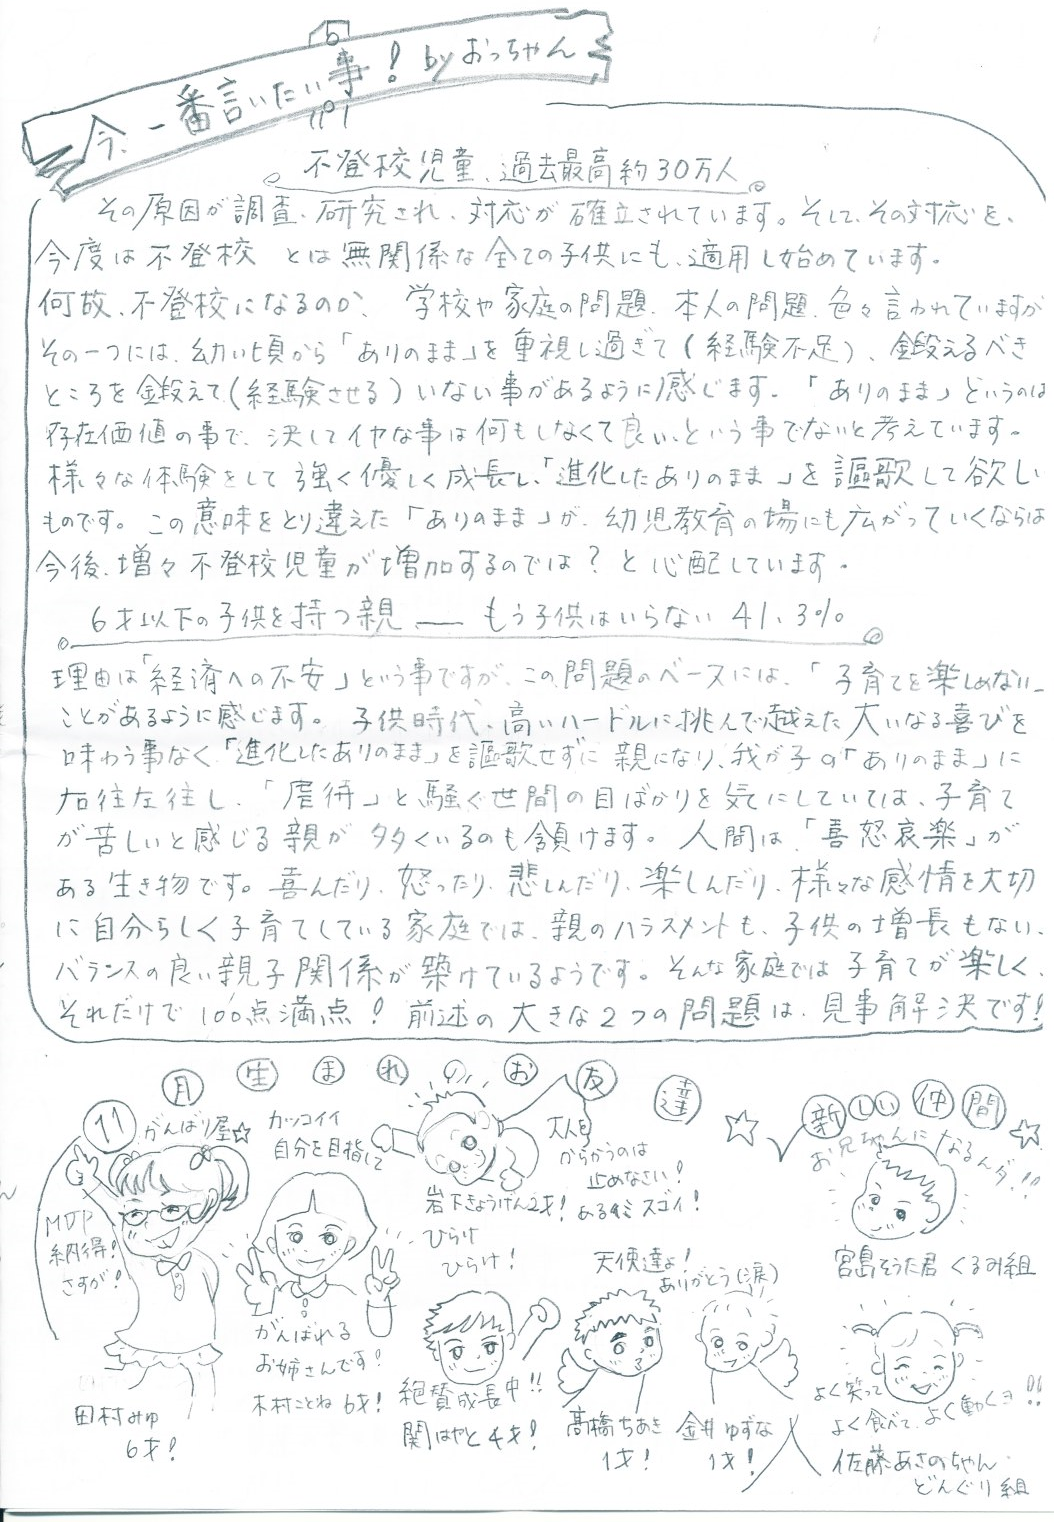 今、一番言いたい事！byおっちゃん
不登校児童、過去最高約30万人
その原因が調査、研究され、対応が確立されています。そして、その対応を、
今度は不登校とは無関係な全ての子供にも、適用し始めています。
何故、不登校になるのか、学校や家庭の問題、本人の問題、色々言われていますが
その一つには、幼い頃から「ありのまま」を重視し過ぎて（経験不足）、鍛えるべき
ところを鍛えて（経験させる）いない事があるように感じます。「ありのまま」というのは
存在価値の事で、決してイヤな事は何もしなくて良い、という事でないと考えています。
様々な体験をして強く優しく成長し、「進化したありのまま」を謳歌して欲しい
ものです。この意味をとり違えた「ありのまま」が、幼児教育の場にも広がっていくならば
今後、増々不登校児童が増加するのでは？と心配しています。
6才以下の子供を持つ親 ― もう子供はいらない 41.3%
理由は「経済への不安」という事ですが、この問題のベースには、「子育てを楽しめない」
ことがあるように感じます。子供時代、高いハードルに挑んで越えた大いなる喜びを
味わう事なく「進化したありのまま」を謳歌せずに親になり、我が子の「ありのまま」に
右往左往し、「虐待」と騒ぐ世間の目ばかりを気にしていては、子育て
が苦しいと感じる親が多くいるのも頷けます。人間は「喜怒哀楽」が
ある生き物です。喜んだり、怒ったり、悲しんだり、楽しんだり、様々な感情を大切
に自分らしく子育てしている家庭では、親のハラスメントも、子供の増長もない、
バランスの良い親子関係が築けているようです。そんな家庭では子育てが楽しく、
それだけで100点満点！前述の大きな2つの問題は、見事解決です！
11月生まれのお友達
がんばり屋☆
MVP
納得！
さすが！
田村みゆ
6才！
カッコイイ
自分を目指して
がんばれる
お姉さんです！
木村ことね 6才！
大人を
からかうのは
止めなさい！
ある Scene スゴイ！
岩下きょうげん2才！
ひらけ
ひらけ！
絶賛成長中!!
関はやと4才！
天使達よ！
ありがとう（涙）
高橋ちあき
1才！
金井ゆずな
1才！
☆新しい仲間☆
お兄ちゃんになるんダ!!
宮島そうた君 くるみ組
よく笑って
よく食べて、よく動くヨ!!
佐藤あさのちゃん
どんぐり組